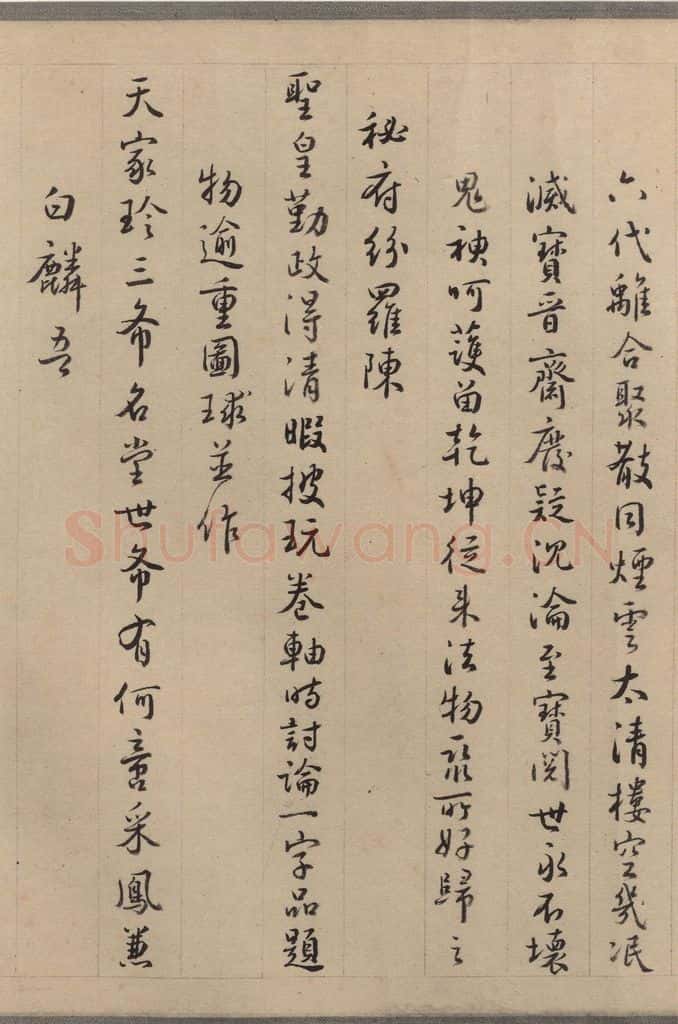 六代離合聚散同煙雲太清樓空幾泯
滅寶晉齋廢疑沉淪至寶閱世永不壞
鬼神呵護留乾坤從来法物聚所好歸之
秘府紛羅陳
聖皇勤政得清暇披玩卷軸時討論一字品題
物逾重圖球並作
天家珍三希名堂世希有何啻采鳳兼
白麟吾
Shufawang.CN